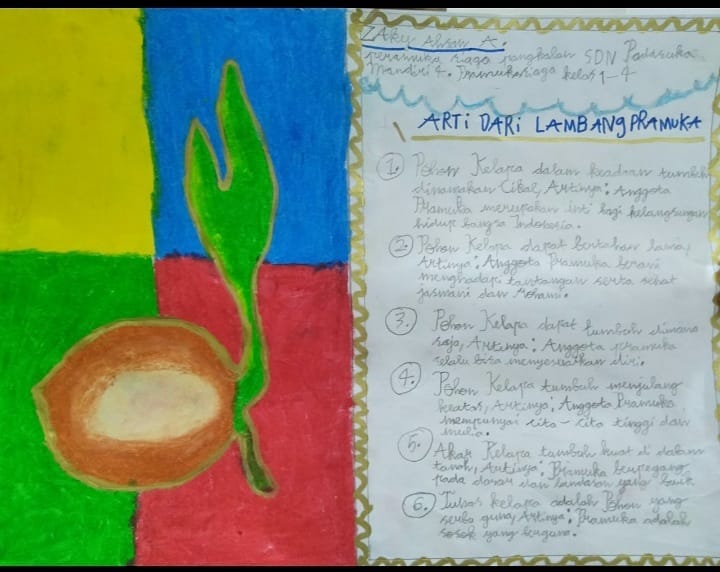 ZAky Ahsan A.
peramuka siaga pangkalan SDN Padasuka
Mandiri 4. Pramuka siaga kelas 1-4
ARTI DARI LAMBANG PRAMUKA
1. Pohon Kelapa dalam keadaan tumbuh
dinamakan Cikal, Artinya: Anggota
Pramuka merupakan inti bagi kelangsungan
hidup bangsa Indonesia.
2. Pohon Kelapa dapat bertahan lama,
Artinya: Anggota Pramuka berani
menghadapi tantangan serta sehat
jasmani dan rohani.
3. Pohon Kelapa dapat tumbuh dimana
saja, Artinya: Anggota pramuka
selalu bisa menyesuaikan diri.
4. Pohon Kelapa tumbuh menjulang
keatas, Artinya: Anggota Pramuka
mempunyai cita-cita tinggi dan
mulia.
5. Akar Kelapa tumbuh kuat di dalam
tanah, Artinya: Pramuka berpegang
pada dasar dan landasan yang baik
6. Tunas kelapa adalah Pohon yang
serba guna, Artinya: Pramuka adalah
sosok yang berguna.